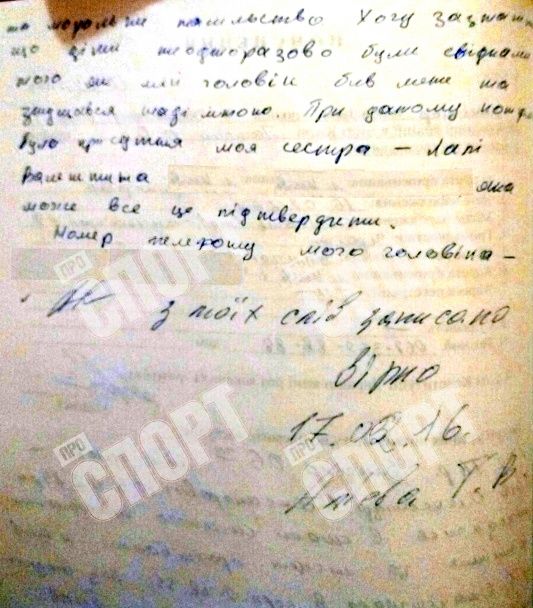 та моральне насильство. Хочу зазначити
що діти неодноразово були свідками
того як мій чоловік бив мене та
знущався наді мною. При даному
була присутня моя сестра - Лапі
Валентина яка
може все це підтвердити.
Номер телефону мого чоловіка -
з моїх слів записано
вірно
17.08.16.
Т.В.
ПРО
СПОРТ
ПРО
СПОРТ
ПРО
СПОРТ